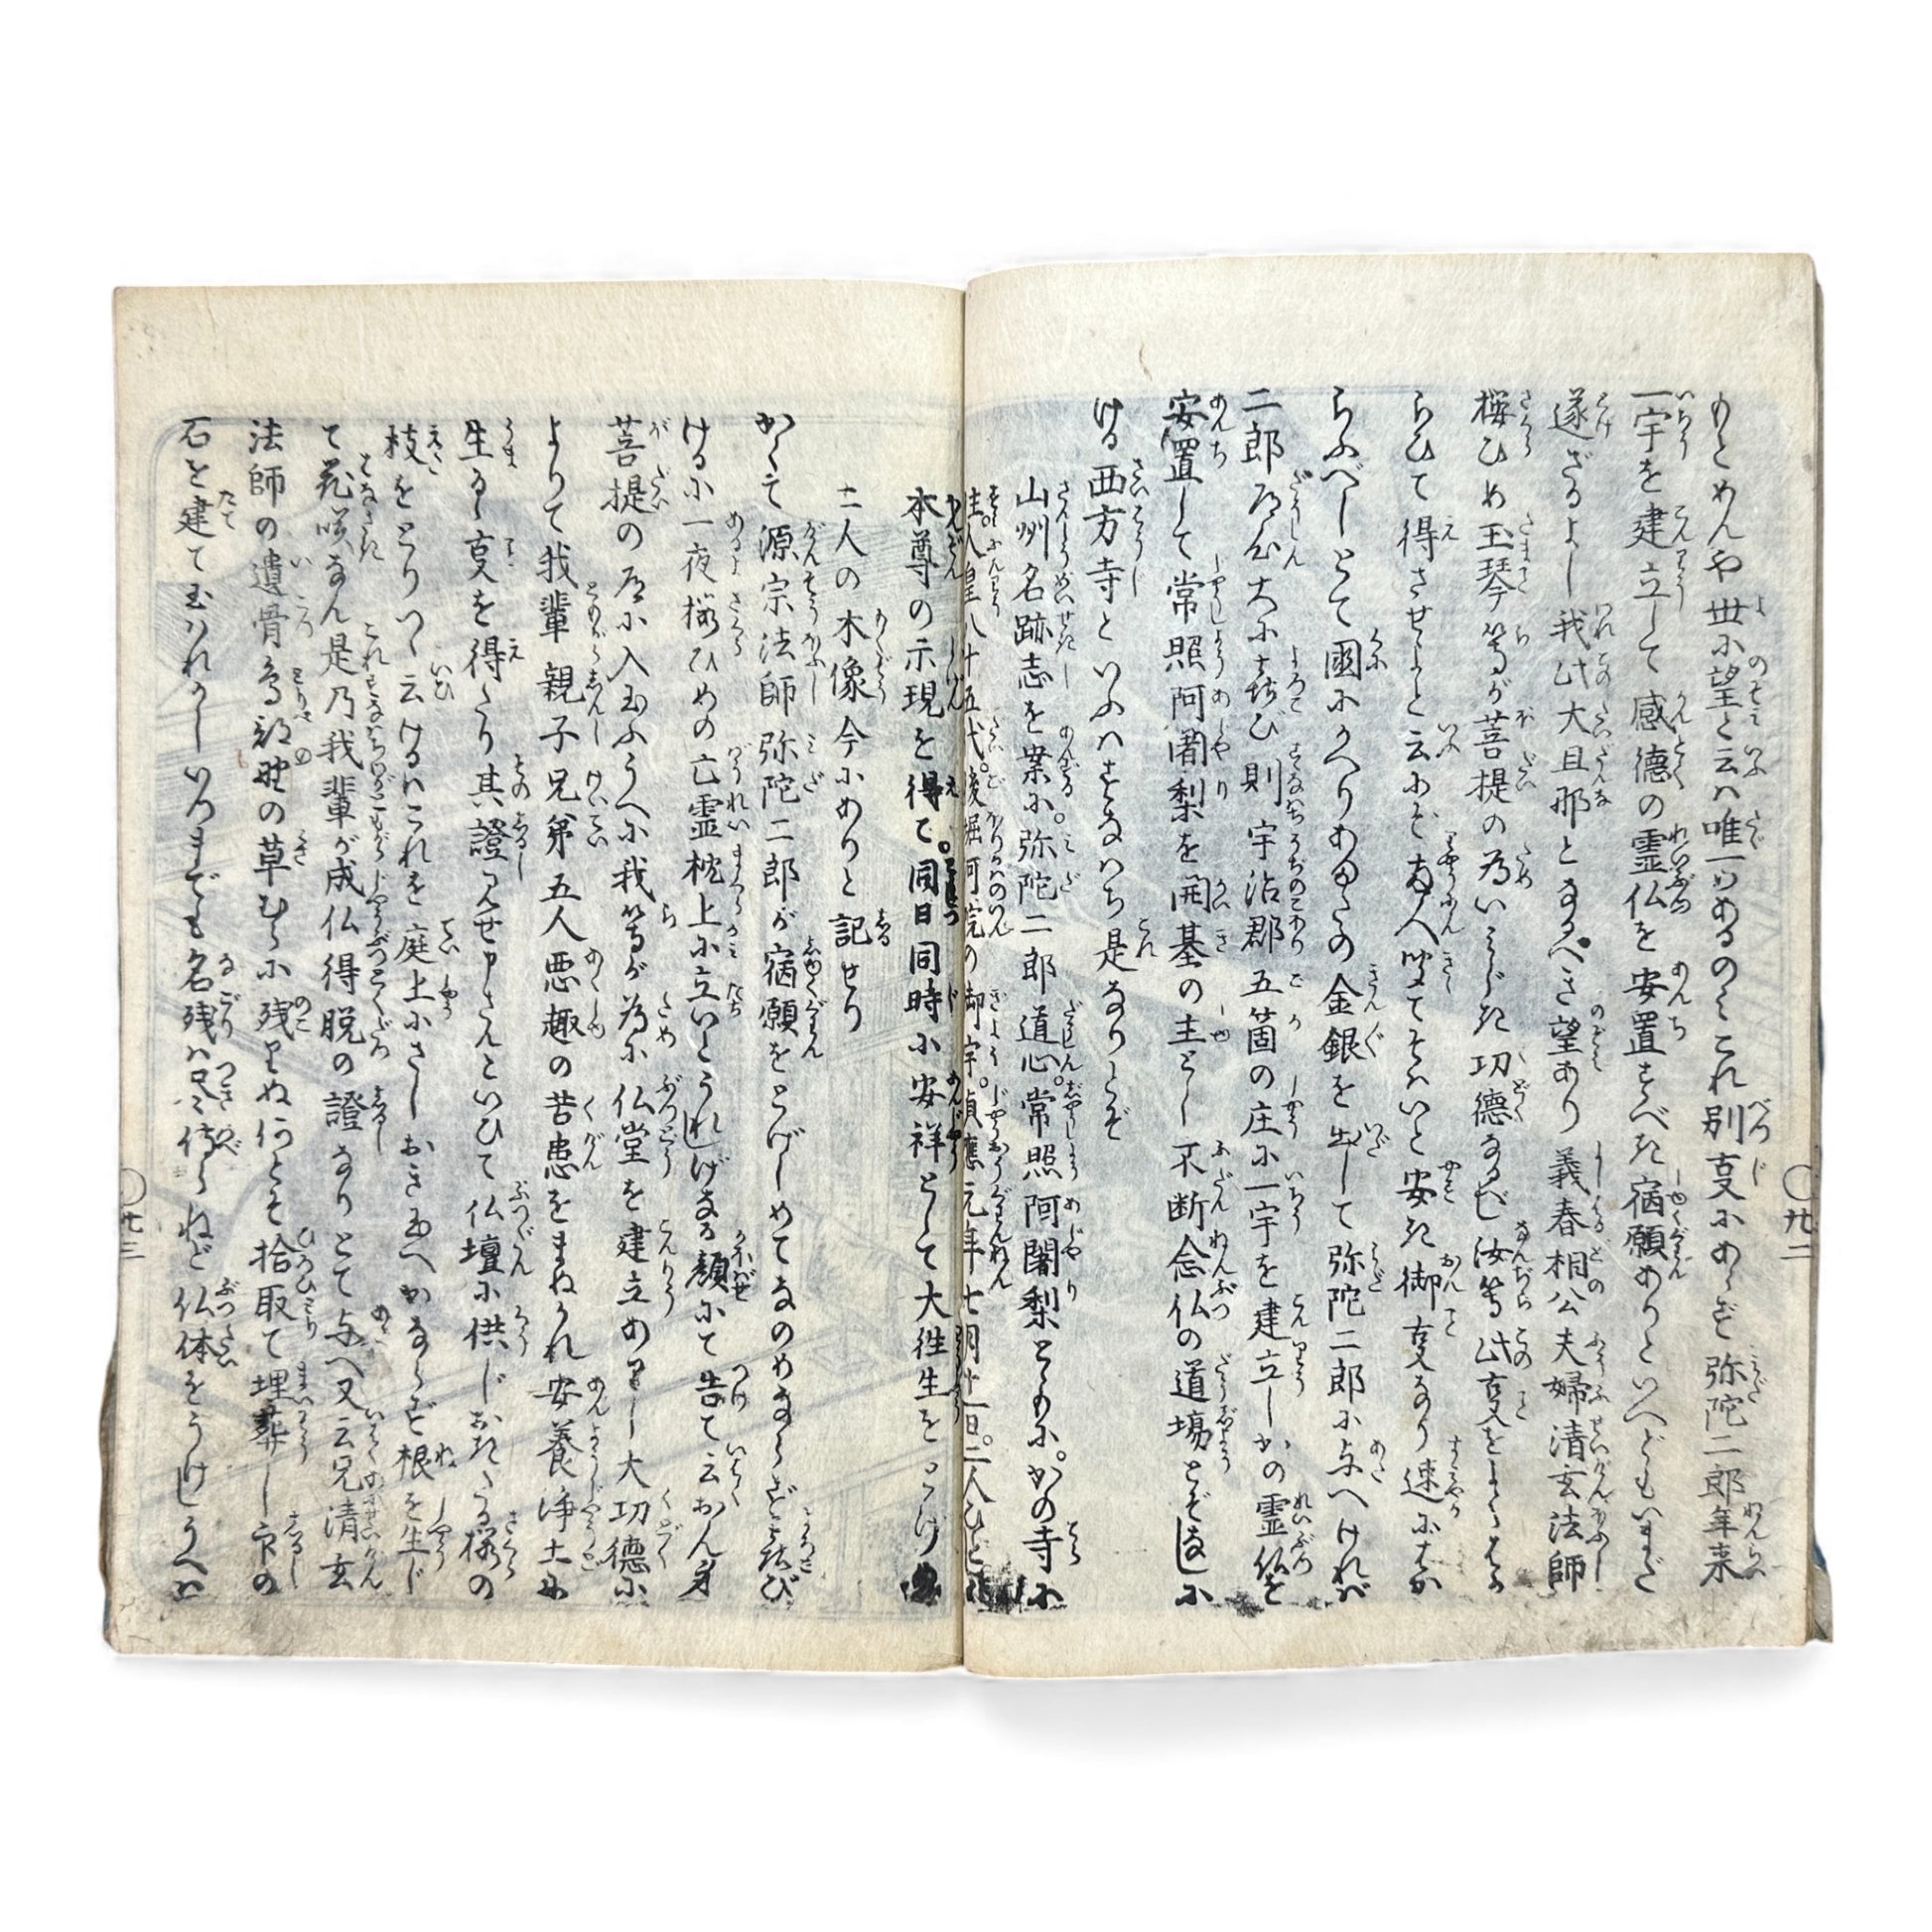 もとめんや世に望と云は唯一つあるのミこれ別事にあらず弥陀二郎年来
一宇を建立して感徳の霊仏を安置すべき宿願ありといへどもいまだ
遂ざるよし我此大旦那となるべき望あり義春相公夫婦清玄法師
桜ひめ玉琴等が菩提の為いミじき功徳なるべし汝等此事をよくはか
らひて得させよと云にぞ両人聞てそはいと安き御事なり速にはか
らふべしとて国にかへりあまたの金銀を出して弥陀二郎に与へければ
二郎道心大に喜び則宇治郡五箇の庄に一宇を建立しかの霊仏を
安置して常照阿闍梨を開基の主とし不断念仏の道場とぞなしに
ける西方寺といふはすなはち是なりとぞ
山州名跡志を案に。弥陀二郎道心。常照阿闍梨ともに。かの寺に
住。人皇八十五代。後堀河院の御宇。貞應元年七月廿一日。二人ひとしく
本尊の示現を得て。同日同時に安祥として大往生をとげ
二人の木像今にありと記せり
かくて源宗法師弥陀二郎が宿願をとげしめてなのめならず喜び
けるに一夜桜ひめの亡霊枕上に立いとうれしげなる顔にて告て云おん身
菩提の道に入玉ふうへに我等が為に仏堂を建立ありし大功徳に
よりて我輩親子兄弟五人悪趣の苦患をまぬかれ安養浄土に
生るゝ事を得たり其證見せ申さんといひて仏壇に供じおきたる桜の
枝をとりつゝ云けるはこれを庭上にさしおき玉へかならず根を生じ
て花咲なん是乃我輩が成仏得脱の證なりとて与へ又云兄清玄
法師の遺骨鳥部野の草むらに残りぬ何とぞ拾取て埋葬し印の
石を建て玉はれかしいつまでも名残は尽侍らねど仏体をうけしうへは
〇廿二
〇廿三